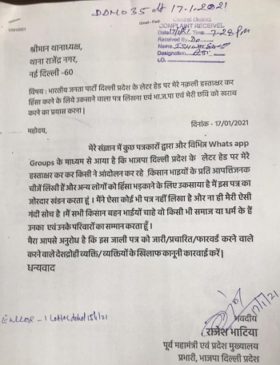 DDNO 35 dt 17-1-2021
COMPLAINT RECEIVED
7:28 PM
श्रीमान थानाध्यक्ष,
थाना राजेंद्र नगर,
नई दिल्ली -60
विषय : भारतीय जनता पार्टी दिल्ली प्रदेश के लेटर हेड पर मेरे नक़ली हस्ताक्षर कर
हिंसा करने के लिये उकसाने वाला पत्र लिखना एवं भा.ज.पा एवं मेरी छवि को खराब
करने का प्रयास करना |
महोदय,
दिनांक - 17/01/2021
मेरे संज्ञान में कुछ पत्रकारों द्वारा और विभिन्न Whats app
Groups के माध्यम से आया है कि भाजपा दिल्ली प्रदेश के लेटर हेड पर मेरे
हस्ताक्षर कर कर किसी ने आंदोलन कर रहे किसान भाइयों के प्रति आपत्तिजनक
चीजें लिखी हैं और अन्य लोगों को हिंसा भड़काने के लिए उकसाया है में इस पत्र का
जोरदार खंडन करता हूं | मैंने ऐसा कोई भी पत्र नहीं लिखा है और ना ही मेरी ऐसी
गंदी सोच है |मैं सभी किसान बहन भाईयों चाहे वो किसी भी समाज या धर्म के हैं
उनका एवं उनके परिवारों का सम्मान करता हूँ |
मेरा आपसे अनुरोध है कि इस जाली पत्र को जारी/प्रचारित/फारवर्ड करने वाले
करने वाले देशद्रोही व्यक्ति/व्यक्तियों के खिलाफ कानूनी कारवाई करें |
धन्यवाद
भवदीय
राजेश भाटिया
पूर्व महामंत्री एवं प्रदेश मुख्यालय
प्रभारी, भाजपा दिल्ली प्रदेश